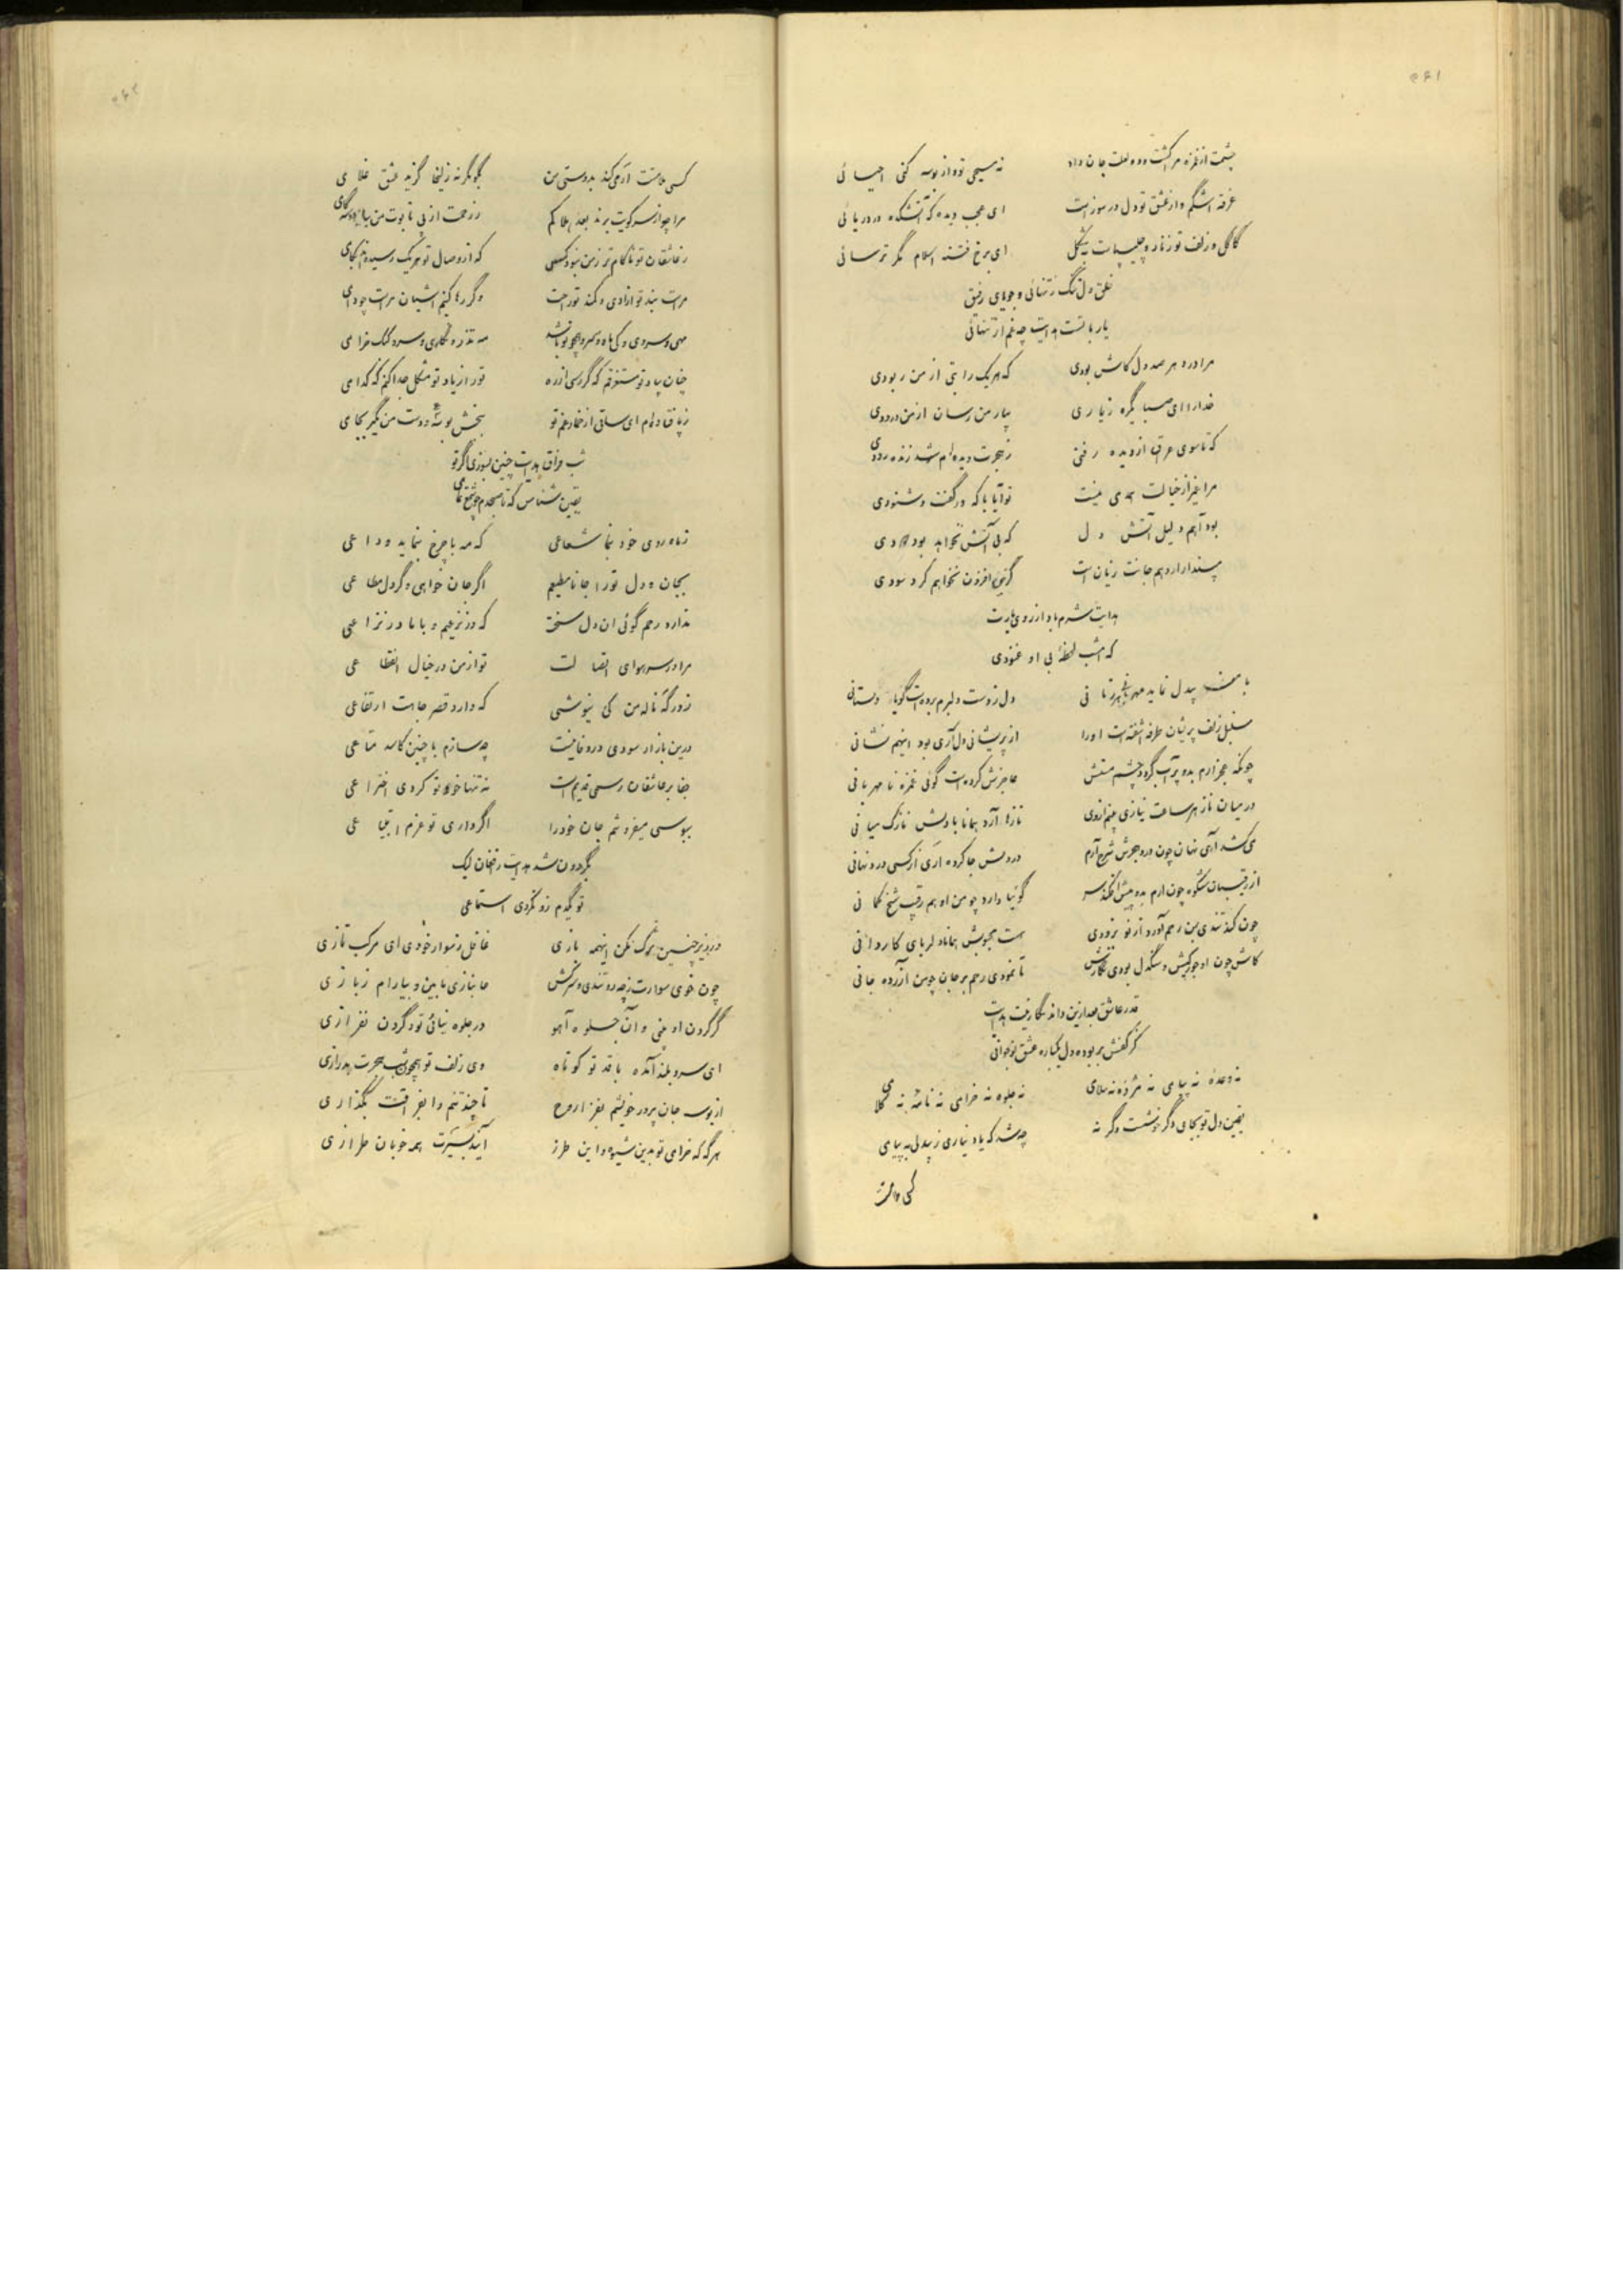 ۳۶۱
چشمت از غمزه مرا کشت و دو لعلت جان داد نه مسیحی تو و از بوسه کنی احیائی
غرقه اشگم و از عشق تو دل در سوز است ای عجب دیده که آتشکده در دریائی
کاکل و زلف تو زنار و چلیپاست بشکل ای برخ فتنه اسلام مگر ترسائی
خلق دل تنگ ز تنهائی و جویای رفیق
یار با تست هدایت چه غم از تنهائی
مرا در بر صد دل کاش بودی که هریک را بتی از من ربودی
خدا را ای صبا بگره زیاری بیار من رسان از من درودی
که تا سوی عراق از دیده رفتی ز هجرت دیده‌ام شد زنده رودی
مرا غیر از خیالت همدمی نیست تو آیا با که در گفت و شنودی
بود آهم دلیل آتش دل که بی آتش نخواهد بود دودی
هدایت شرم باد از روی یارت
که شب لحظهٔ بی او غنودی
سنبل زلف پریشان طرفه آشفته است او را از پریشانی دل آری بود اینهم نشانی
چونکه عجز آرم بدو پر آب گردد چشم مستش عاجزش کرده است گوئی غمزه نا مهربانی
در میان ناز هر ساعت نیازی بینم از وی نازها آرد همانا با دلش نازک میانی
می کشد آهی نهان چون درد هجرش شرح آرم در دلش جا کرده آری نرگسی درد نهانی
از رقیبان شکوه چون آرم بدو پیش افکند سر گوئیا دارد چو من او هم رقیب شخ کمانی
چون کند تندی بمن رحم آورد از نو بزودی هست محبوبش همانا دلربای کاردانی
کاش چون او جور کیش و سنگدل بودی نگارش تا نمودی رحم بر جان چو من آزرده جانی
قدر عاشق بعد ازین داند نگارینت هدایت
کز کفش بربوده دل یکباره عشق نوجوانی
نه وعدهٔ نه پیامی نه مژدهٔ نه سلامی نه جلوه نه خرامی نه نامهٔ نه کلامی
یقین دل تو بجای دگر نشست وگرنه چه شد که یاد نیاری ز بیدلی به پیامی
کسی ملامت
۳۶۲
کسی ملامت ار می‌کند بدوستی من بگو مگر نه زلیخا گزید عشق غلامی
مرا چو از سر کویت برند بعد هلاکم ز رحمت از پی تابوت من بیا دو سه گامی
ز عاشقان تو ناکام‌تر ز من نبود کسی که از وصال تو هریک رسیده‌اند بکامی
مراست بند تو آزادی و کمند تو راحت وگر رها کنیم آشیان مراست چو دامی
مهی و سروی و کی ماه و سرو همچو تو باشد مه تذرو نگاری و سرو کبک خرامی
چنان بیاد تو مستغرقم که گر رسی از ره تو را ز یاد تو مشکل جدا کنم که کدامی
ز پا فتاده‌ام ای ساقی از خمار غم تو ببخش بوسهٔ و دست من بگیر بجامی
شب فراق هدایت چنین بسوزی اگر تو
یقین شناس که تا صبحدم چو شمع تمامی
ز ماه روی خود بنما شعاعی که مه با چرخ بنماید وداعی
بجان و دل تو را جانا مطیعم اگر جان خواهی و گر دل مطاعی
ندارد رحم گوئی آن دل سخت که در نزعیم و با ما در نزاعی
مرا در سر هوای اتصالت تو از من در خیال انقطاعی
ز درگه ناله من کی نیوشی که دارد قصر جاهت ارتفاعی
درین بازار سودی در وفا نیست چه سازم با چنین کاسد متاعی
جفا بر عاشقان رسمی قدیم است نه تنها خود تو کردی اختراعی
ببوسی میفروشم جان خود را اگر داری تو عزم ابتیاعی
بگردون شد هدایت را فغان لیک
تو یکدم زو نکردی استماعی
چون خوی سوارت ز چه رو تندی و سرکش جانبازی ما بین و بیارام ز بازی
گر گردن او بینی و آن جلوه آهو در جلوه نیائی تو و گردن نفرازی
ای سرو بلند آمده با قد تو کوتاه وی زلف تو همچون شب هجرت بدرازی
از بوسه جان پرور خویشم بفزا روح تا چند تنم را بفراقت بگدازی
هرگه که خرامی تو بدین شیوه و این طرز آیند بسیرت همه خوبان طرازی